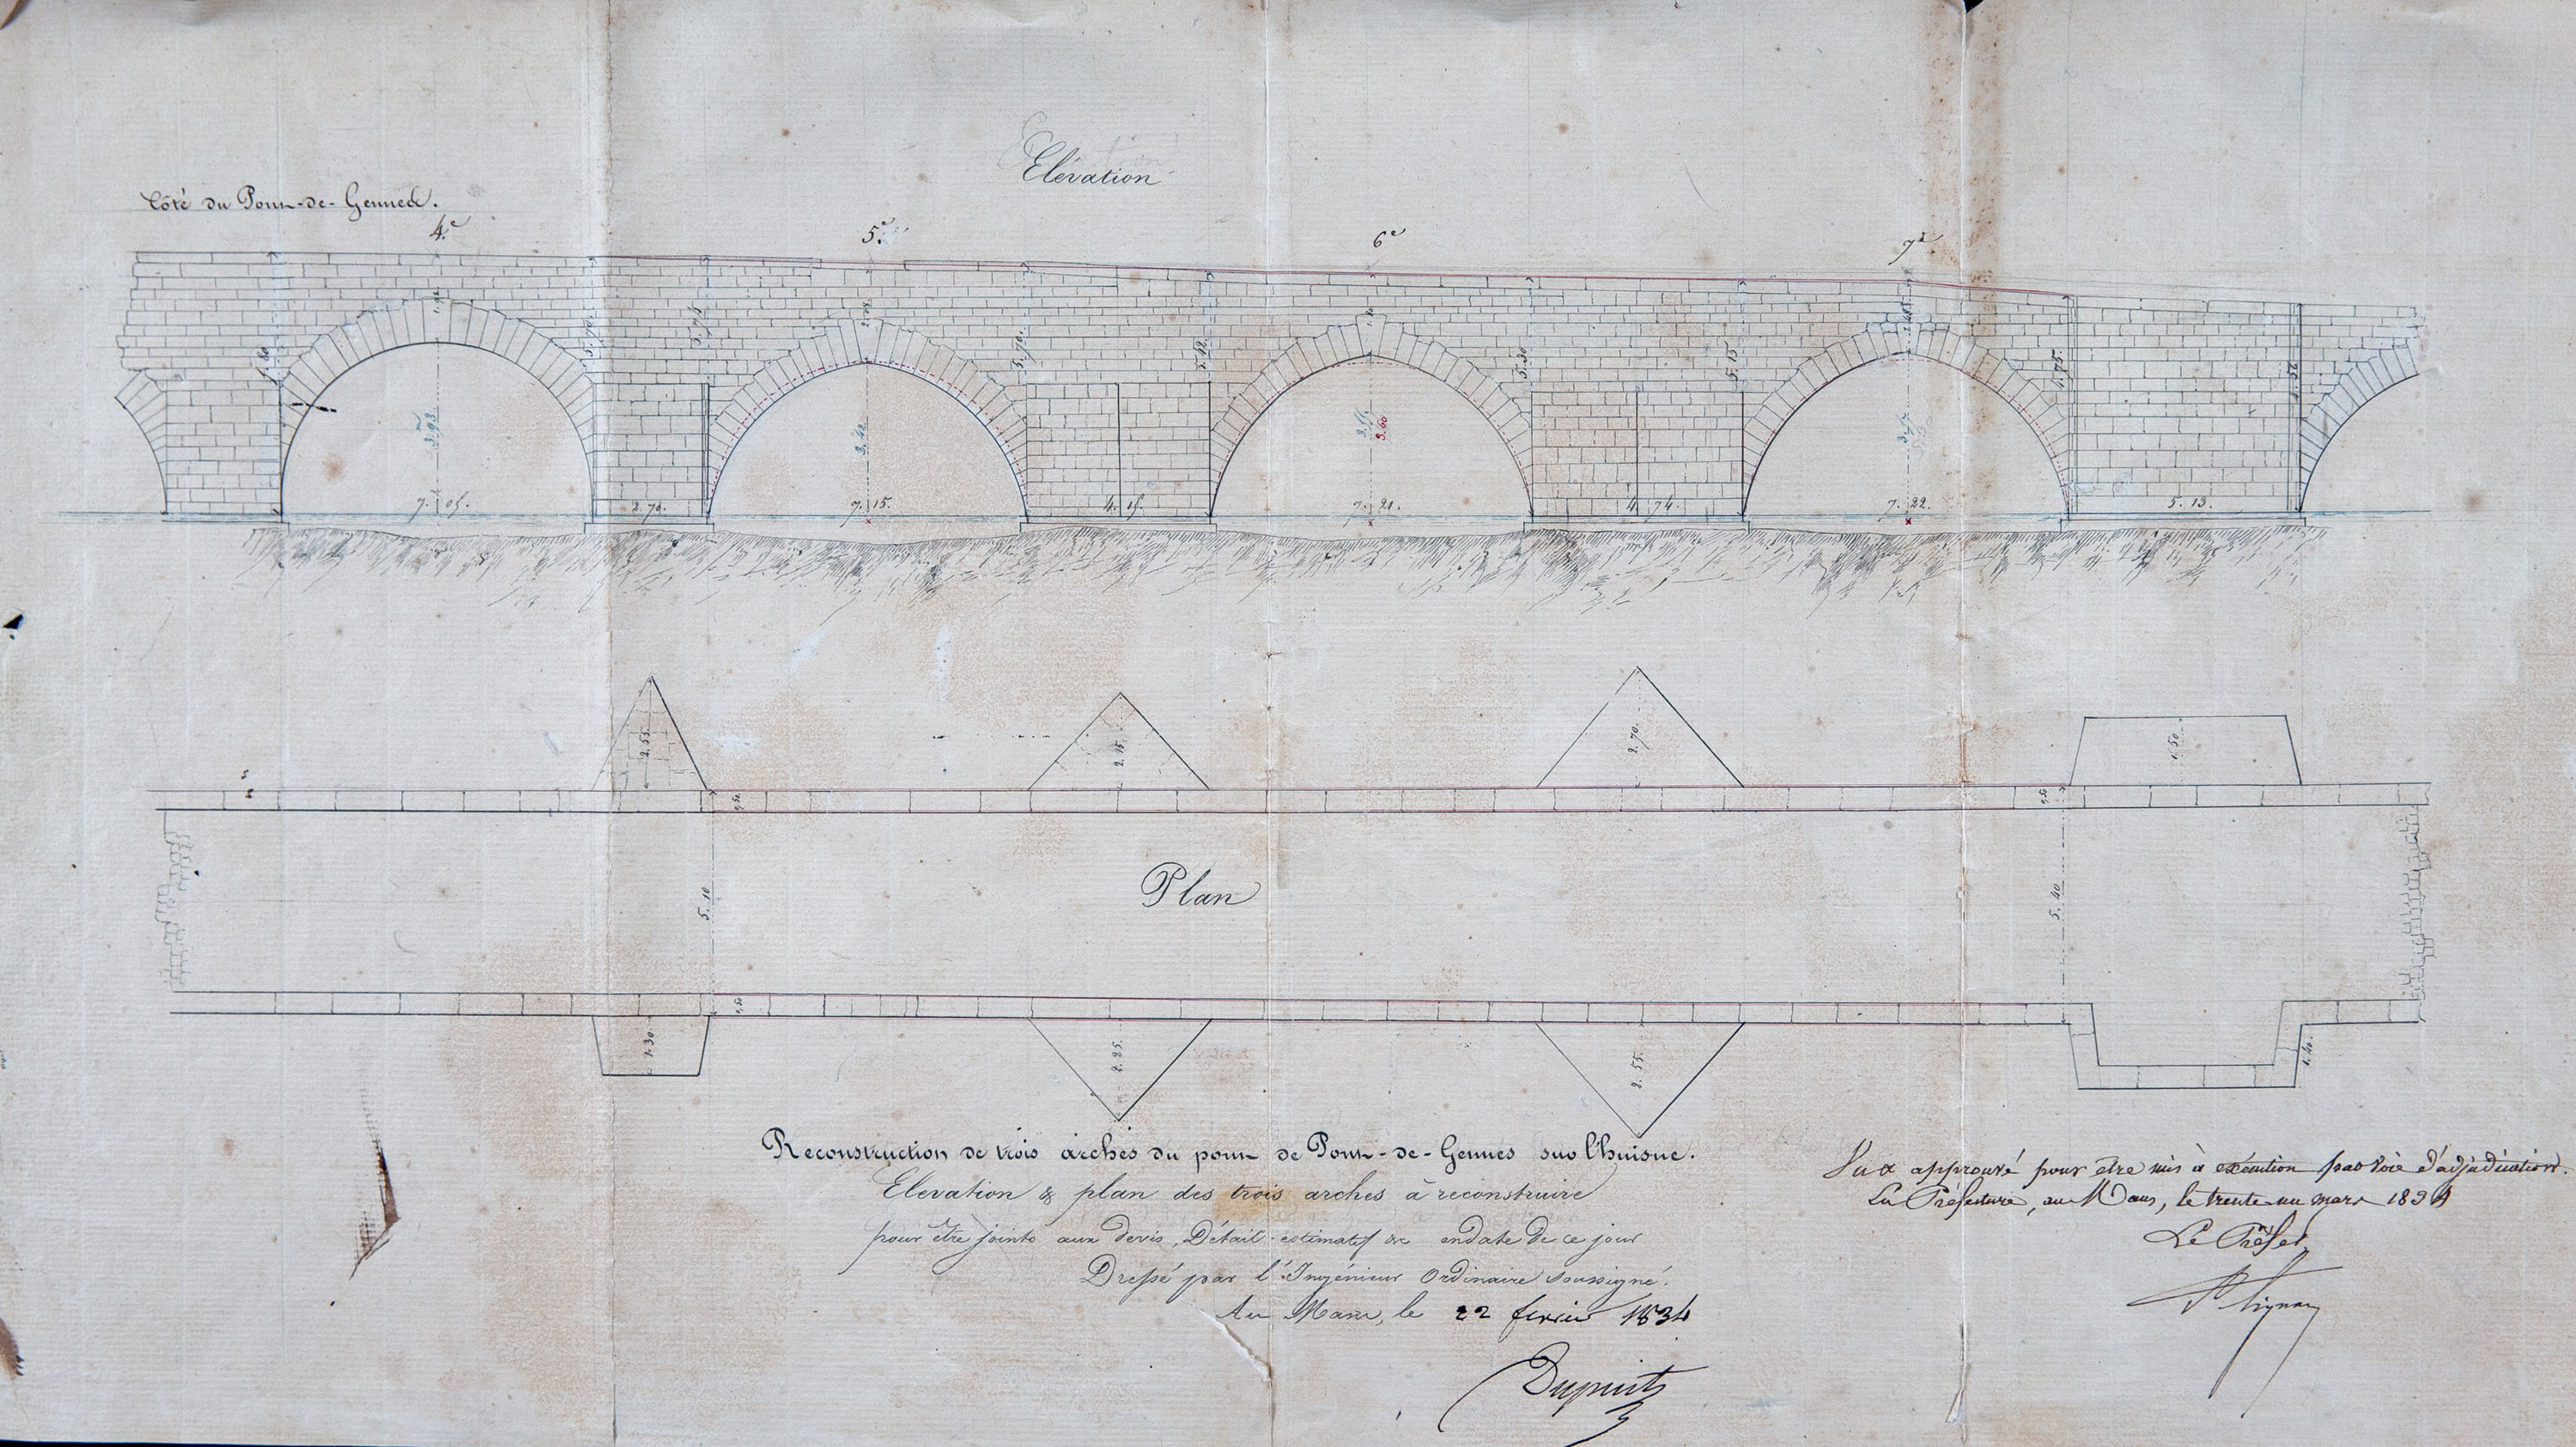 Elévation
Côté du Pont-de-Gennes.
4.e
5.e
6e
7e
5.70.
5.74
5.70.
5.42
5.30
5.15
4.75.
4.56
3.93
3.42
3.60
7.05.
2.70.
7.15.
4.15.
7.21.
4.74.
7.22.
5.13.
2.55
2.15.
2.70.
1.50
0,50
0,50
Plan
5.10
5.40
0,50
1.30
2.25.
2.55.
1.40.
Reconstruction de trois arches du pont de Pont-de-Gennes sur l'huisne.
Elevation & plan des trois arches à reconstruire
pour être joints aux devis, Détail estimatif &c en date de ce jour
Dressé par l'Ingénieur Ordinaire soussigné.
Au Mans, le 22 fevrier 1834
Dupuit
Vu & approuvé pour être mis à exécution par voie d'adjudication.
La Préfecture, au Mans, le trente un mars 1834
Le Préfet